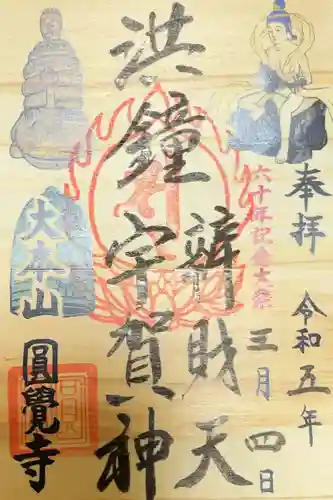 奉拝
令和五年
三月四日
六十年記念大祭
辨財天
洪鐘宇賀神
大本山
圓覺寺